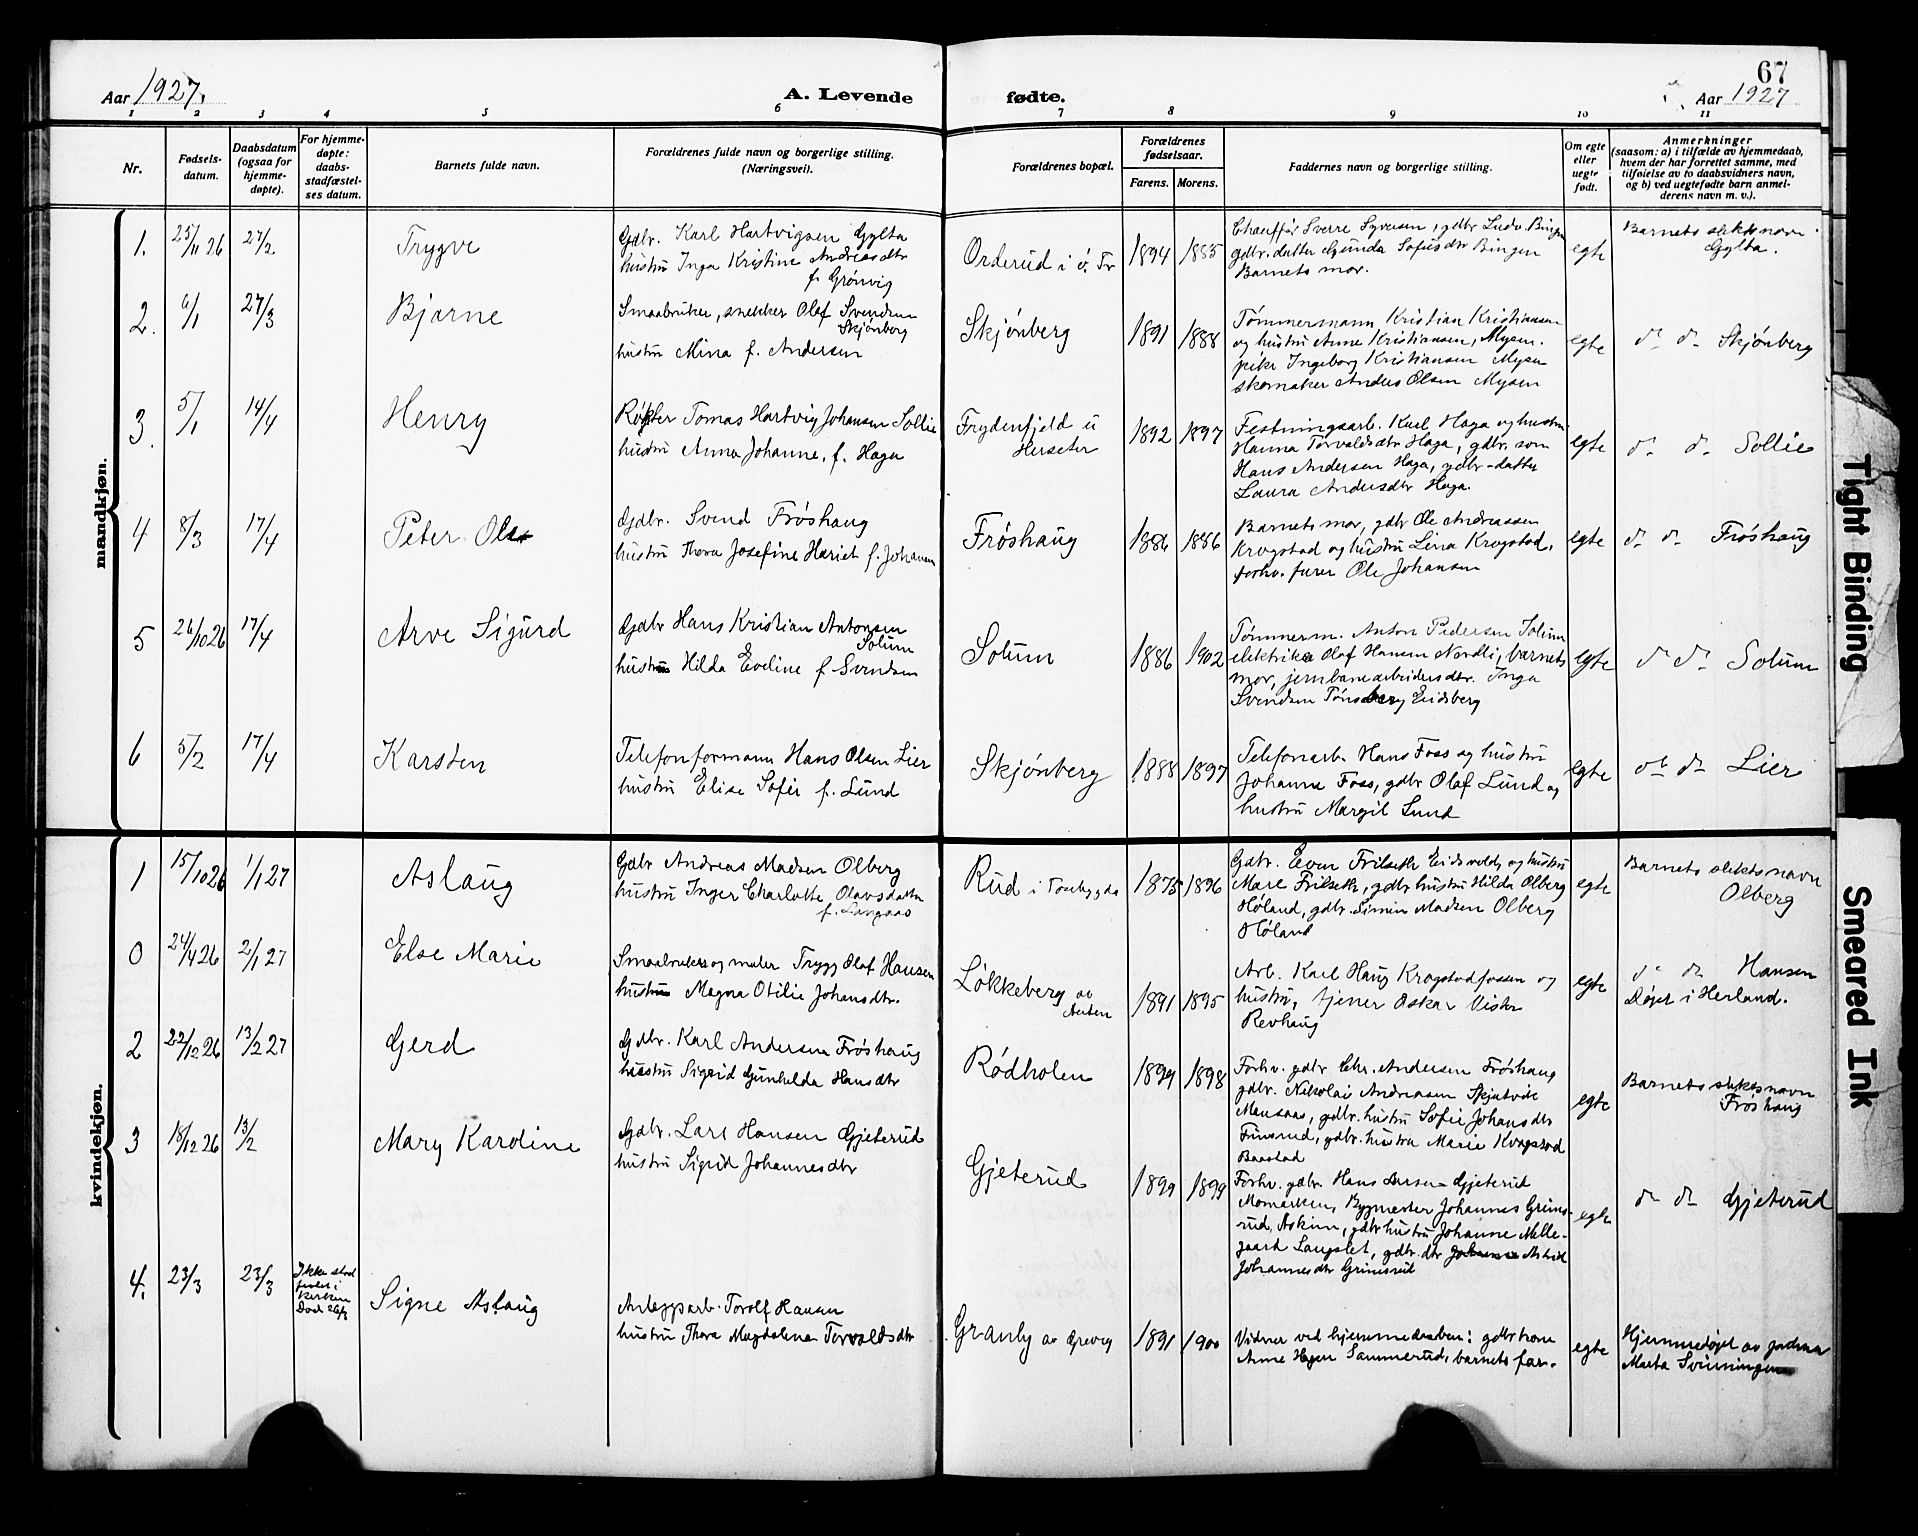 Aar 1927.
A. Levende fødte.
67
Aar 1927
1 2 3 4 5 6 7 8 9 10 11
Nr.
Fødsels-
datum.
Daabsdatum
(ogsaa for
hjemme-
døpte).
For hjemme-
døpte:
daabs-
stadfæstel-
ses datum.
Barnets fulde navn.
Forældrenes fulde navn og borgerlige stilling.
(Næringsvei).
Forældrenes bopæl.
Forældrenes
fødselsaar.
Farens. Morens.
Faddernes navn og borgerlige stilling.
Om egte
eller
uegte
født.
Anmerkninger
(saasom: a) i tilfælde av hjemmedaab,
hvem der har forrettet samme, med
tilføielse av to daabsvidners navn,
og b) ved uegtefødte barn anmel-
derens navn m. v.).
mandkjøn.
1. 25/11 26 27/2
Trygve
Gdbr. Karl Hartvigsen Gylta
hustru Inga Kristine Andreasdtr
f. Grønvig
Orderud i ø. Tr
1894 1885
Chauffør Sverre Syversen, gdbr Ludv. Bingen
gdbr. datter Gunda Sofiesdtr Bingen
Barnets mor.
egte
Barnets slektsnavn
Gylta.
2. 6/1 27/3
Bjarne
Smaabruker, snekker Olaf Svendsen
Skjønberg
hustru Mina f. Andersen
Skjønberg
1891 1888
Tømmermann Kristian Kristiansen
og hustru Anne Kristiansen, Mysen.
pike Ingeborg Kristiansen Mysen
skomaker Anders Olsen Mysen
egte
do do Skjønberg
3. 5/1 14/4
Henry
Røkter Tomas Hartvig Johansen Sollie
hustru Anna Johanne, f. Haga
Frydenfjeld u
Herseter
1892 1897
Festningsarb. Karl Haga og hustru
Hanna Torvaldsdtr Haga, gdbr. søn
Hans Andersen Haga, gdbr-datter
Laura Andersdtr Haga.
egte
do do Sollie
4 8/3 17/4
Peter
Gdbr. Svend Frøshaug
hustru Thora Josefine Hariet f. Johansen
Frøshaug
1886 1886
Barnets mor, gdbr Ole Andreassen
Krogstad og hustru Lina Krogstad,
forhv. furer Ole Johansen
egte
do do Frøshaug
5 26/10 26 17/4
Arve Sigurd
Gdbr Hans Kristian Antonsen
Solum
hustru Hilda Eveline f. Svendsen
Solum
1886 1902
Tømmerm. Anton Pedersen Solum
elektriker Olaf Hansen Nordli, barnets
mor, jernbanearbeidersdtr. Inga
Svendsen Tønsberg Eidsberg
egte
do do Solum
6 5/2 17/4
Karsten
Telefonformann Hans Olsen Lier
hustru Elise Sofie f. Lund
Skjønberg
1888 1897
Telefonarb. Hans Foss og hustru
Johanne Foss, gdbr Olaf Lund og
hustru Margit Lund
egte
do do Lier
kvindekjøn.
1 15/10 26 1/1 27
Aslaug
Gdbr Andreas Madsen Olberg
hustru Inger Charlotte Olavsdatter
f. Langaas
Rud i Tosebygda
1875 1896
Gdbr. Even Frilseth Eidsvold, og hustru
Marie Frilseth, gdbr hustru Hilda Olberg
Høland, gdbr. Simen Madsen Olberg
Høland
egte
Barnets slektsnavn
Olberg
0 24/4 26 2/1 27
Else Marie
Smaabruker og maler Trygg Olaf Hansen
hustru Magna Otilie Johansdtr.
Løkkeberg av
1891 1895
Arb. Karl Haug Krogstadfossen og
hustru, tjener Oskar Vister
Revhaug
egte
do do Hansen
Døpt i Herland.
2 22/12 26 13/2 27
Gerd
Gdbr. Karl Andersen Frøshaug
hustru Sigrid Gunhilda Hansdtr
Rødholen
1899 1898
Forhv. gdbr Chr. Andersen Frøshaug
gdbr. Nikolai Andreasen Skjatvik
gdbr. hustru Sofie Johansdtr
Finsrud, gdbr. hustru Marie Krogstad
Baastad
egte
Barnets slektsnavn
Frøshaug
3 18/12 26 13/2
Mary Karoline
Gdbr. Lars Hansen Gjeterud
hustru Sigrid Johannesdtr
Gjeterud
1899 1899
Forhv. gdbr. Hans Larsen Gjeterud
Momarken, Bygmester Johannes Grims-
rud, Askim, gdbr hustru Johanne Melle-
gaard Langslet, gdbr. dtr Johanne Astrid
Johannesdtr Grimsrud
egte
do do Gjeterud
4. 23/3 23/3
Ikke stad
festet i
kirken
Død 26/3
Signe Aslaug
Anlegsarb. Torolf Hansen
hustru Thora Magdalena Torvaldsdtr
Granly av Greveg
1891 1900
Vidner ved hjemmedaaben: gdbr kone
Anne Hagen Sammerud, barnets far.
egte
Hjemmedøpt av jordmor
Marta Svenningsen
Tight Binding
Smeared Ink